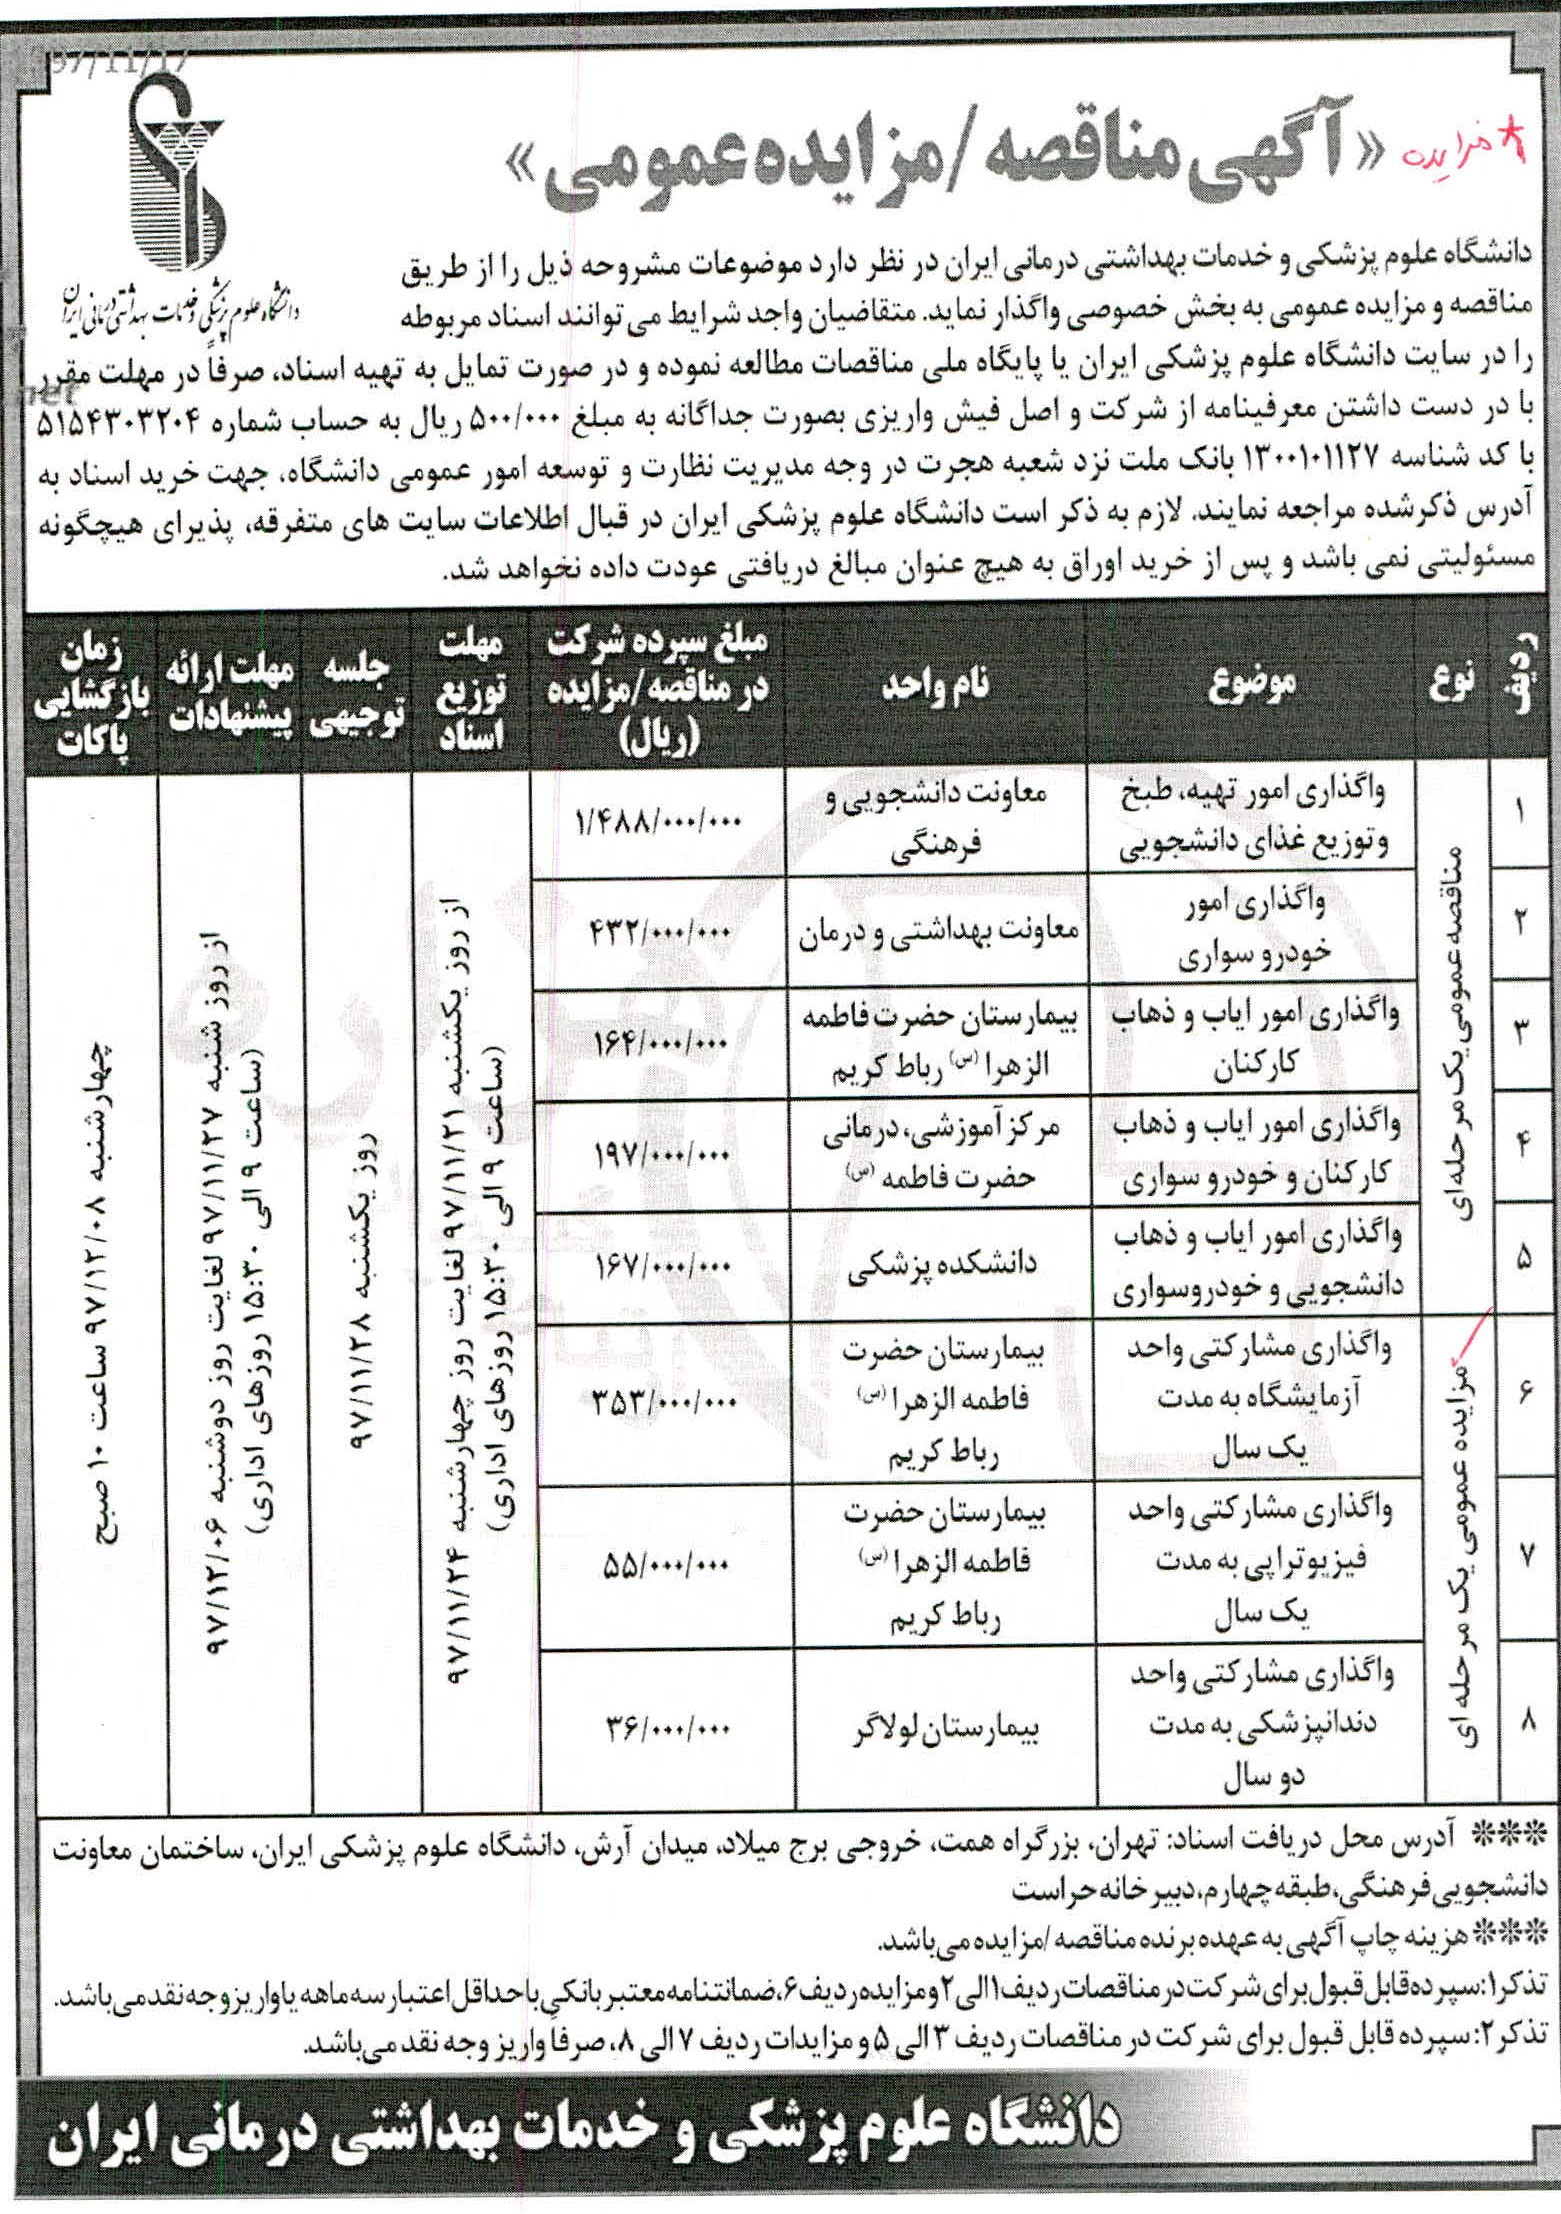 97/11/17
* مزایده
«آگهی مناقصه/مزایده عمومی»
دانشگاه علوم پزشکی و خدمات بهداشتی درمانی ایران
دانشگاه علوم پزشکی و خدمات بهداشتی درمانی ایران در نظر دارد موضوعات مشروحه ذیل را از طریق
مناقصه و مزایده عمومی به بخش خصوصی واگذار نماید. متقاضیان واجد شرایط می توانند اسناد مربوطه
را در سایت دانشگاه علوم پزشکی ایران یا پایگاه ملی مناقصات مطالعه نموده و در صورت تمایل به تهیه اسناد، صرفاً در مهلت مقرر
با در دست داشتن معرفینامه از شرکت و اصل فیش واریزی بصورت جداگانه به مبلغ ۵۰۰/۰۰۰ ریال به حساب شماره ۵۱۵۴۳۰۳۲۰۴
با کد شناسه ۱۳۰۰۱۰۱۱۲۷ بانک ملت نزد شعبه هجرت در وجه مدیریت نظارت و توسعه امور عمومی دانشگاه، جهت خرید اسناد به
آدرس ذکرشده مراجعه نمایند. لازم به ذکر است دانشگاه علوم پزشکی ایران در قبال اطلاعات سایت های متفرقه، پذیرای هیچگونه
مسئولیتی نمی باشد و پس از خرید اوراق به هیچ عنوان مبالغ دریافتی عودت داده نخواهد شد.
ردیف
نوع
موضوع
نام واحد
مبلغ سپرده شرکت
در مناقصه/مزایده
(ریال)
مهلت
توزیع
اسناد
جلسه
توجیهی
مهلت ارائه
پیشنهادات
زمان
بازگشایی
پاکات
۱
مناقصه عمومی یک مرحله‌ای
واگذاری امور تهیه، طبخ
و توزیع غذای دانشجویی
معاونت دانشجویی و
فرهنگی
۱/۴۸۸/۰۰۰/۰۰۰
از روز یکشنبه ۹۷/۱۱/۲۱ لغایت روز چهارشنبه ۹۷/۱۱/۲۴
(ساعت ۹ الی ۱۵:۳۰ روزهای اداری)
روز یکشنبه ۹۷/۱۱/۲۸
از روز شنبه ۹۷/۱۱/۲۷ لغایت روز دوشنبه ۹۷/۱۲/۰۶
(ساعت ۹ الی ۱۵:۳۰ روزهای اداری)
چهارشنبه ۹۷/۱۲/۰۸ ساعت ۱۰ صبح
۲
واگذاری امور
خودرو سواری
معاونت بهداشتی و درمان
۴۳۲/۰۰۰/۰۰۰
۳
واگذاری امور ایاب و ذهاب
کارکنان
بیمارستان حضرت فاطمه
الزهرا (س) رباط کریم
۱۶۴/۰۰۰/۰۰۰
۴
واگذاری امور ایاب و ذهاب
کارکنان و خودرو سواری
مرکز آموزشی، درمانی
حضرت فاطمه (س)
۱۹۷/۰۰۰/۰۰۰
۵
واگذاری امور ایاب و ذهاب
دانشجویی و خودروسواری
دانشکده پزشکی
۱۶۷/۰۰۰/۰۰۰
۶
مزایده عمومی یک مرحله ای
واگذاری مشارکتی واحد
آزمایشگاه به مدت
یک سال
بیمارستان حضرت
فاطمه الزهرا (س)
رباط کریم
۳۵۳/۰۰۰/۰۰۰
۷
واگذاری مشارکتی واحد
فیزیوتراپی به مدت
یک سال
بیمارستان حضرت
فاطمه الزهرا (س)
رباط کریم
۵۵/۰۰۰/۰۰۰
۸
واگذاری مشارکتی واحد
دندانپزشکی به مدت
دو سال
بیمارستان لولاگر
۳۶/۰۰۰/۰۰۰
*** آدرس محل دریافت اسناد: تهران، بزرگراه همت، خروجی برج میلاد، میدان آرش، دانشگاه علوم پزشکی ایران، ساختمان معاونت
دانشجویی فرهنگی، طبقه چهارم، دبیرخانه حراست
*** هزینه چاپ آگهی به عهده برنده مناقصه/مزایده می‌باشد.
تذکر۱: سپرده قابل قبول برای شرکت در مناقصات ردیف ۱ الی ۲ و مزایده ردیف ۶، ضمانتنامه معتبر بانکی با حداقل اعتبار سه ماهه یا واریز وجه نقد می باشد.
تذکر۲: سپرده قابل قبول برای شرکت در مناقصات ردیف ۳ الی ۵ و مزایدات ردیف ۷ الی ۸، صرفاً واریز وجه نقد می‌باشد.
دانشگاه علوم پزشکی و خدمات بهداشتی درمانی ایران